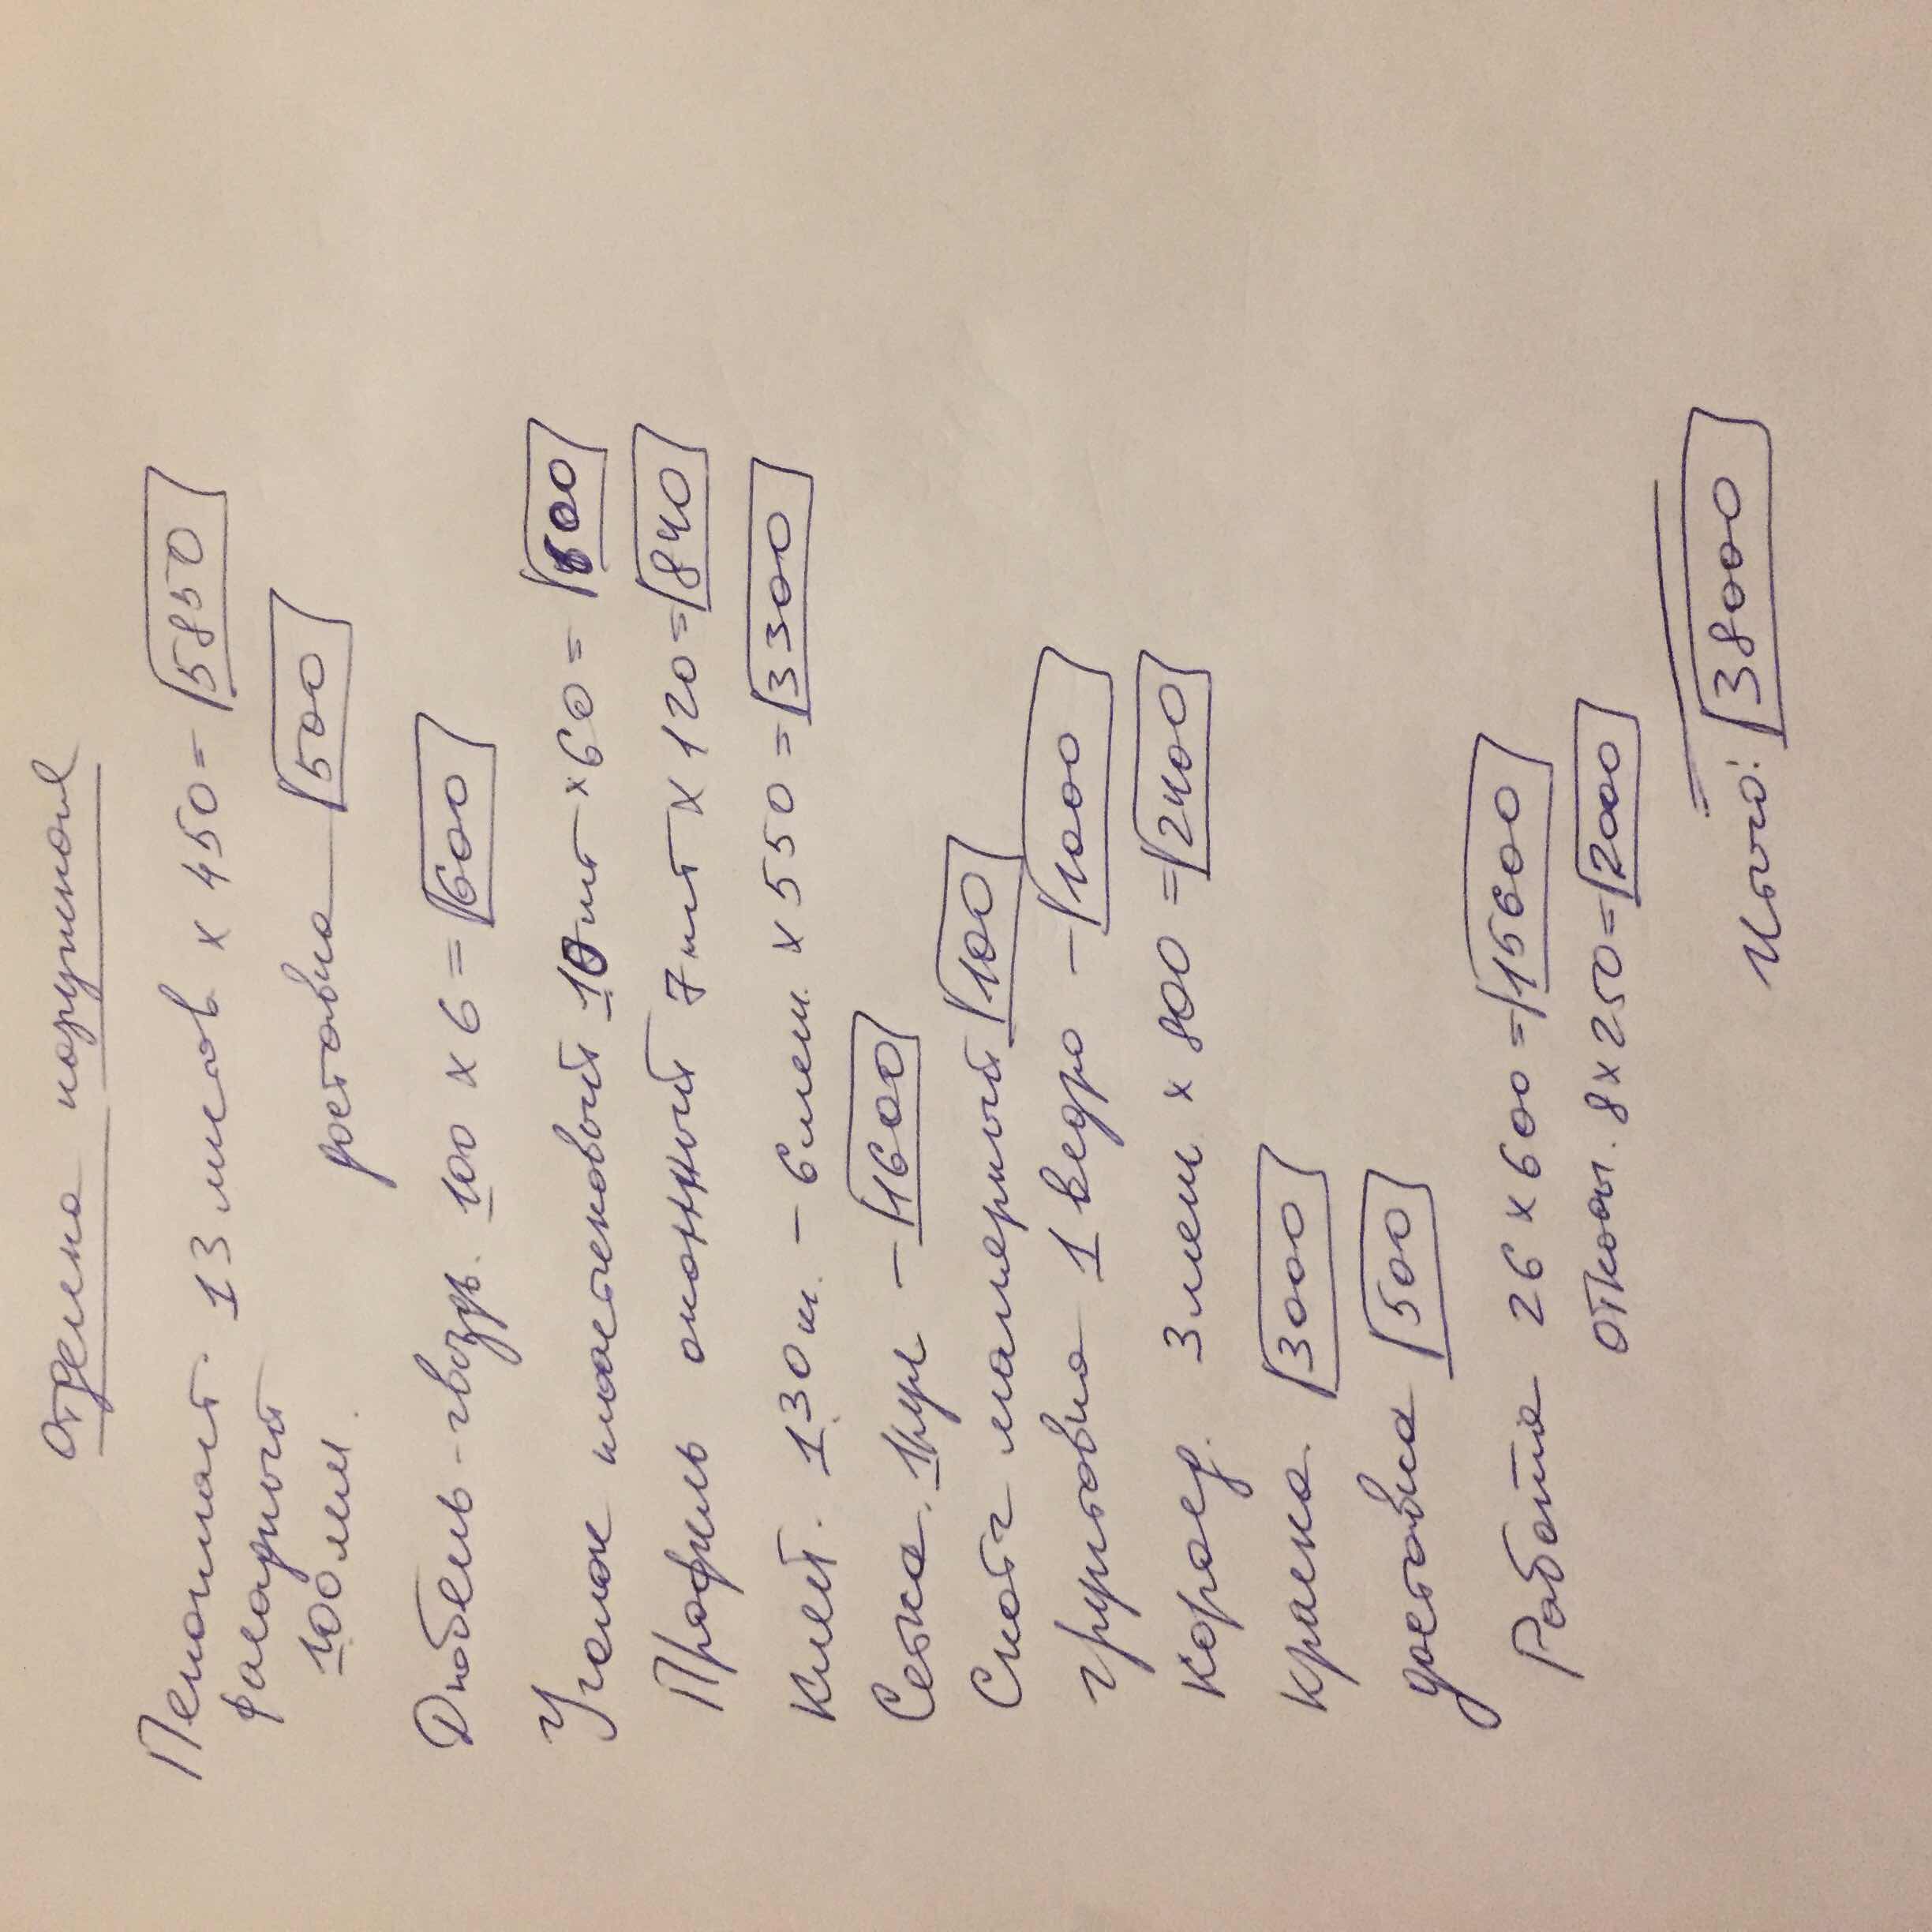 Отделка наружная
Пенопласт. 13 листов x 450 = 5850
фасадный
100 мм.
доставка 500
Дюбель-гвоздь. 100 x 6 = 600
Уголок пластиковый 10 шт x 60 = 600
Профиль оконный 7 шт x 120 = 840
Клей. 130 кг. - 6 меш. x 550 = 3300
Сетка. 1 рул - 1600
Скотч малярный 100
грунтовка 1 ведро - 1000
Короед. 3 меш x 800 = 2400
краска. 3000
доставка 500
Работа 26 x 600 = 15600
откосы. 8 x 250 = 2000
Итого: 38000